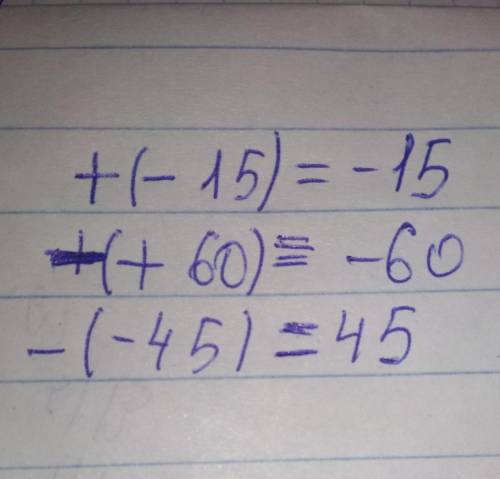 +(-15)=-15
-(+60)=-60
-(-45)=45